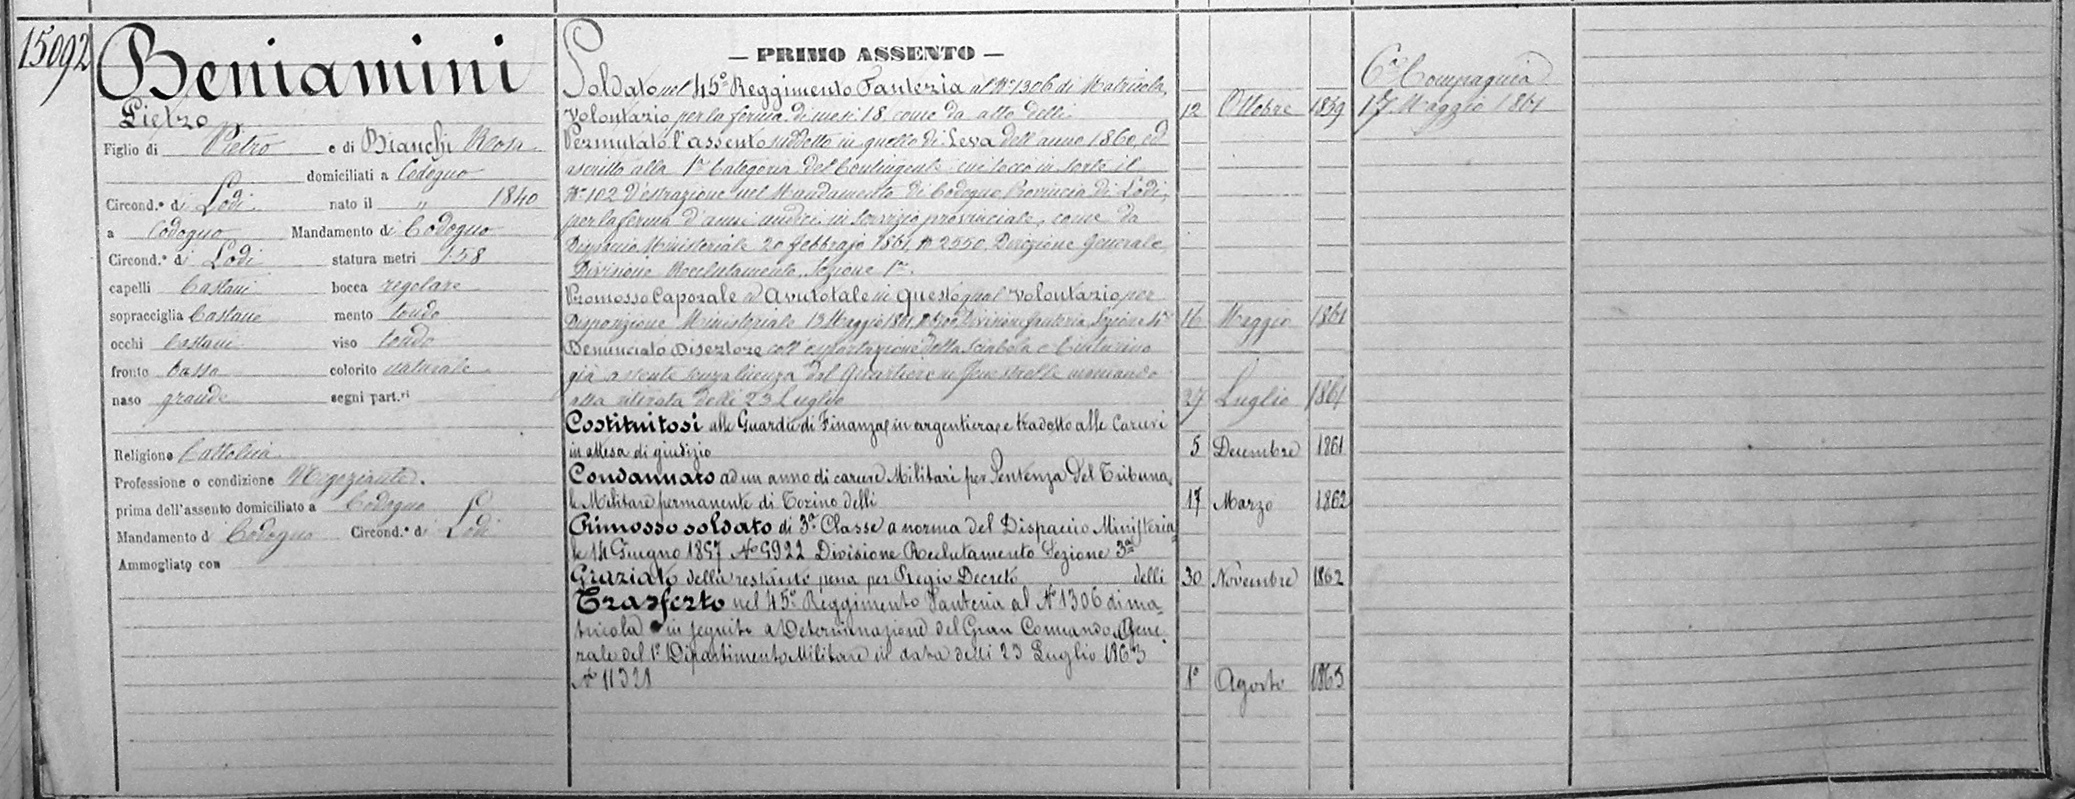 15092
Beniamini
Pietro
Figlio di Pietro e di Bianchi Rosa
domiciliati a Codogno
Circond.º di Lodi nato il " 1840
a Codogno Mandamento di Codogno
Circond.º di Lodi statura metri 1.58
capelli Castani bocca regolare
sopracciglia Castane mento tondo
occhi Castani viso tondo
fronte bassa colorito naturale
naso grande segni part.ri
Religione Cattolica
Professione o condizione Negoziante.
prima dell'assento domiciliato a Codogno
Mandamento di Codogno Circond.º di Lodi
Ammogliato con
— PRIMO ASSENTO —
Soldato nel 45º Reggimento Fanteria al Nº 1306 di Matricola,
Volontario per la ferma di mesi 18 come da atto delli 12 Ottobre 1859
Permutato l'assento suddetto in quello di Leva dell'anno 1860, ed
ascritto alla 1ª Categoria del Contingente cui tocco in sorte il
Nº 102 d'estrazione nel Mandamento di Codogno Provincia di Lodi,
per la ferma d'anni undici in servizio provinciale, come da
Dispaccio Ministeriale 20 febbrajo 1861 Nº 2550 Direzione Generale
Divisione Reclutamento, Sezione 1ª.
Promosso Caporale e Avuto tale in Questo qual Volontario per
Disposizione Ministeriale 13 Maggio 1861 Divisione fanteria, Sezione 16 Maggio 1861
Denunciato Disertore coll'esportazione della Sciabola e Cinturino
già assente senza licenza dal Quartiere in Fenestrelle mancando
alla ritirata delli 23 Luglio 27 Luglio 1861
Costituitosi alle Guardie di Finanza in argentiera e tradotto alle Carceri
in attesa di giudizio 5 Decembre 1861
Condannato ad un anno di carcere Militari per Sentenza Del Tribuna
le Militare permanente di Torino delli 17 Marzo 1862
Rimosso soldato di 3ª Classe a norma del Dispaccio Ministeria
le 14 Giugno 1857 Nº 5922 Divisione Reclutamento Sezione 3ª
Graziato della restante pena per Regio Decreto delli 30 Novembre 1862
Trasferto nel 45º Reggimento Fanteria al Nº 1306 di ma
tricola in seguito a Determinazione del Gran Comando Gene
rale del 1º Dipartimento Militare in data delli 23 Luglio 1863
Nº 11321 1º Agosto 1863
6ª Compagnia
17 Maggio 1861